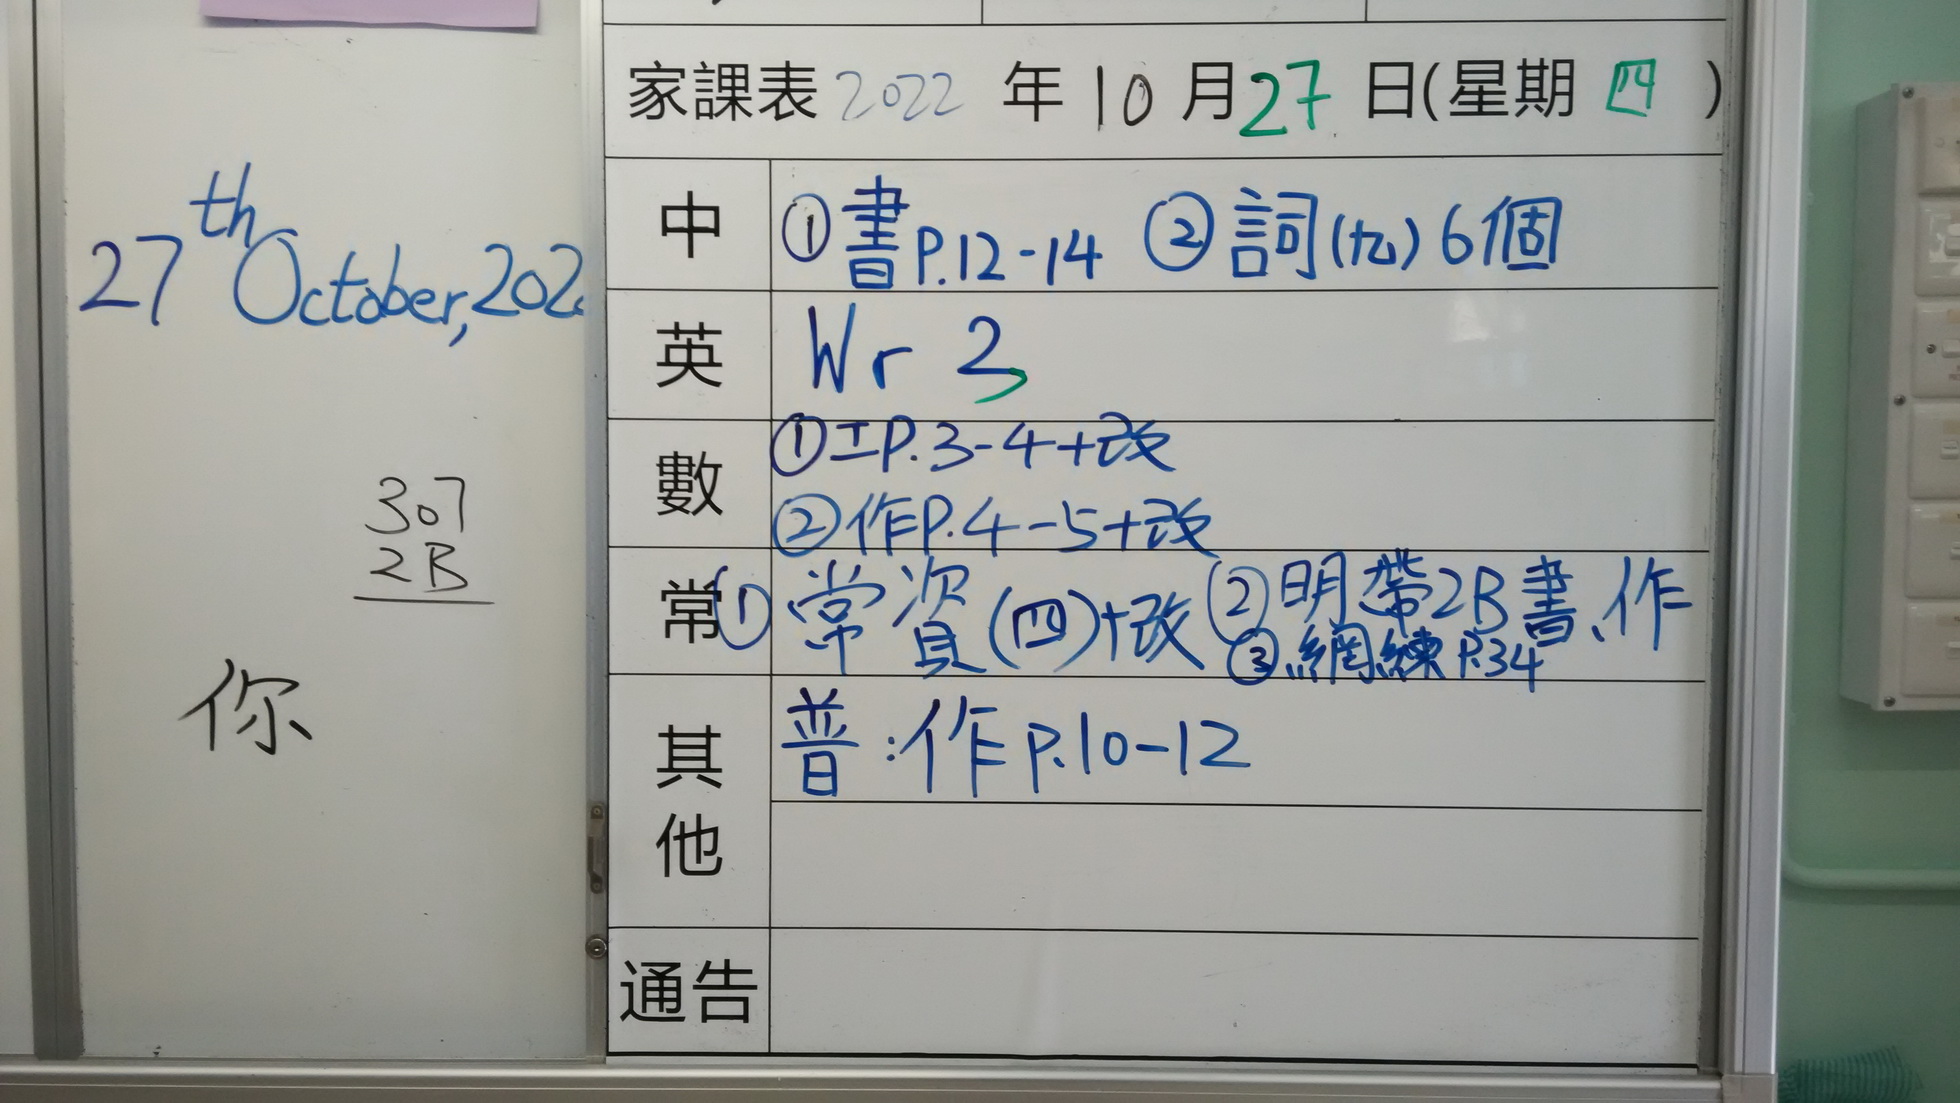 27th October, 202
307
2B
你
家課表 2022 年 10 月 27 日(星期 四 )
中 ①書P.12-14 ②詞(九)6個
英 Wr 3
數 ①工P.3-4+改
②作P.4-5+改
常 ①常資(四)+改 ②明帶2B書、作
③網練P.34
其他 普:作P.10-12
通告